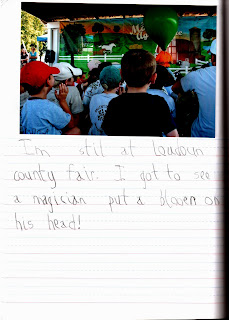 I'm still at Loudoun
county fair. I got to see
a magician put a bloon on
his head!